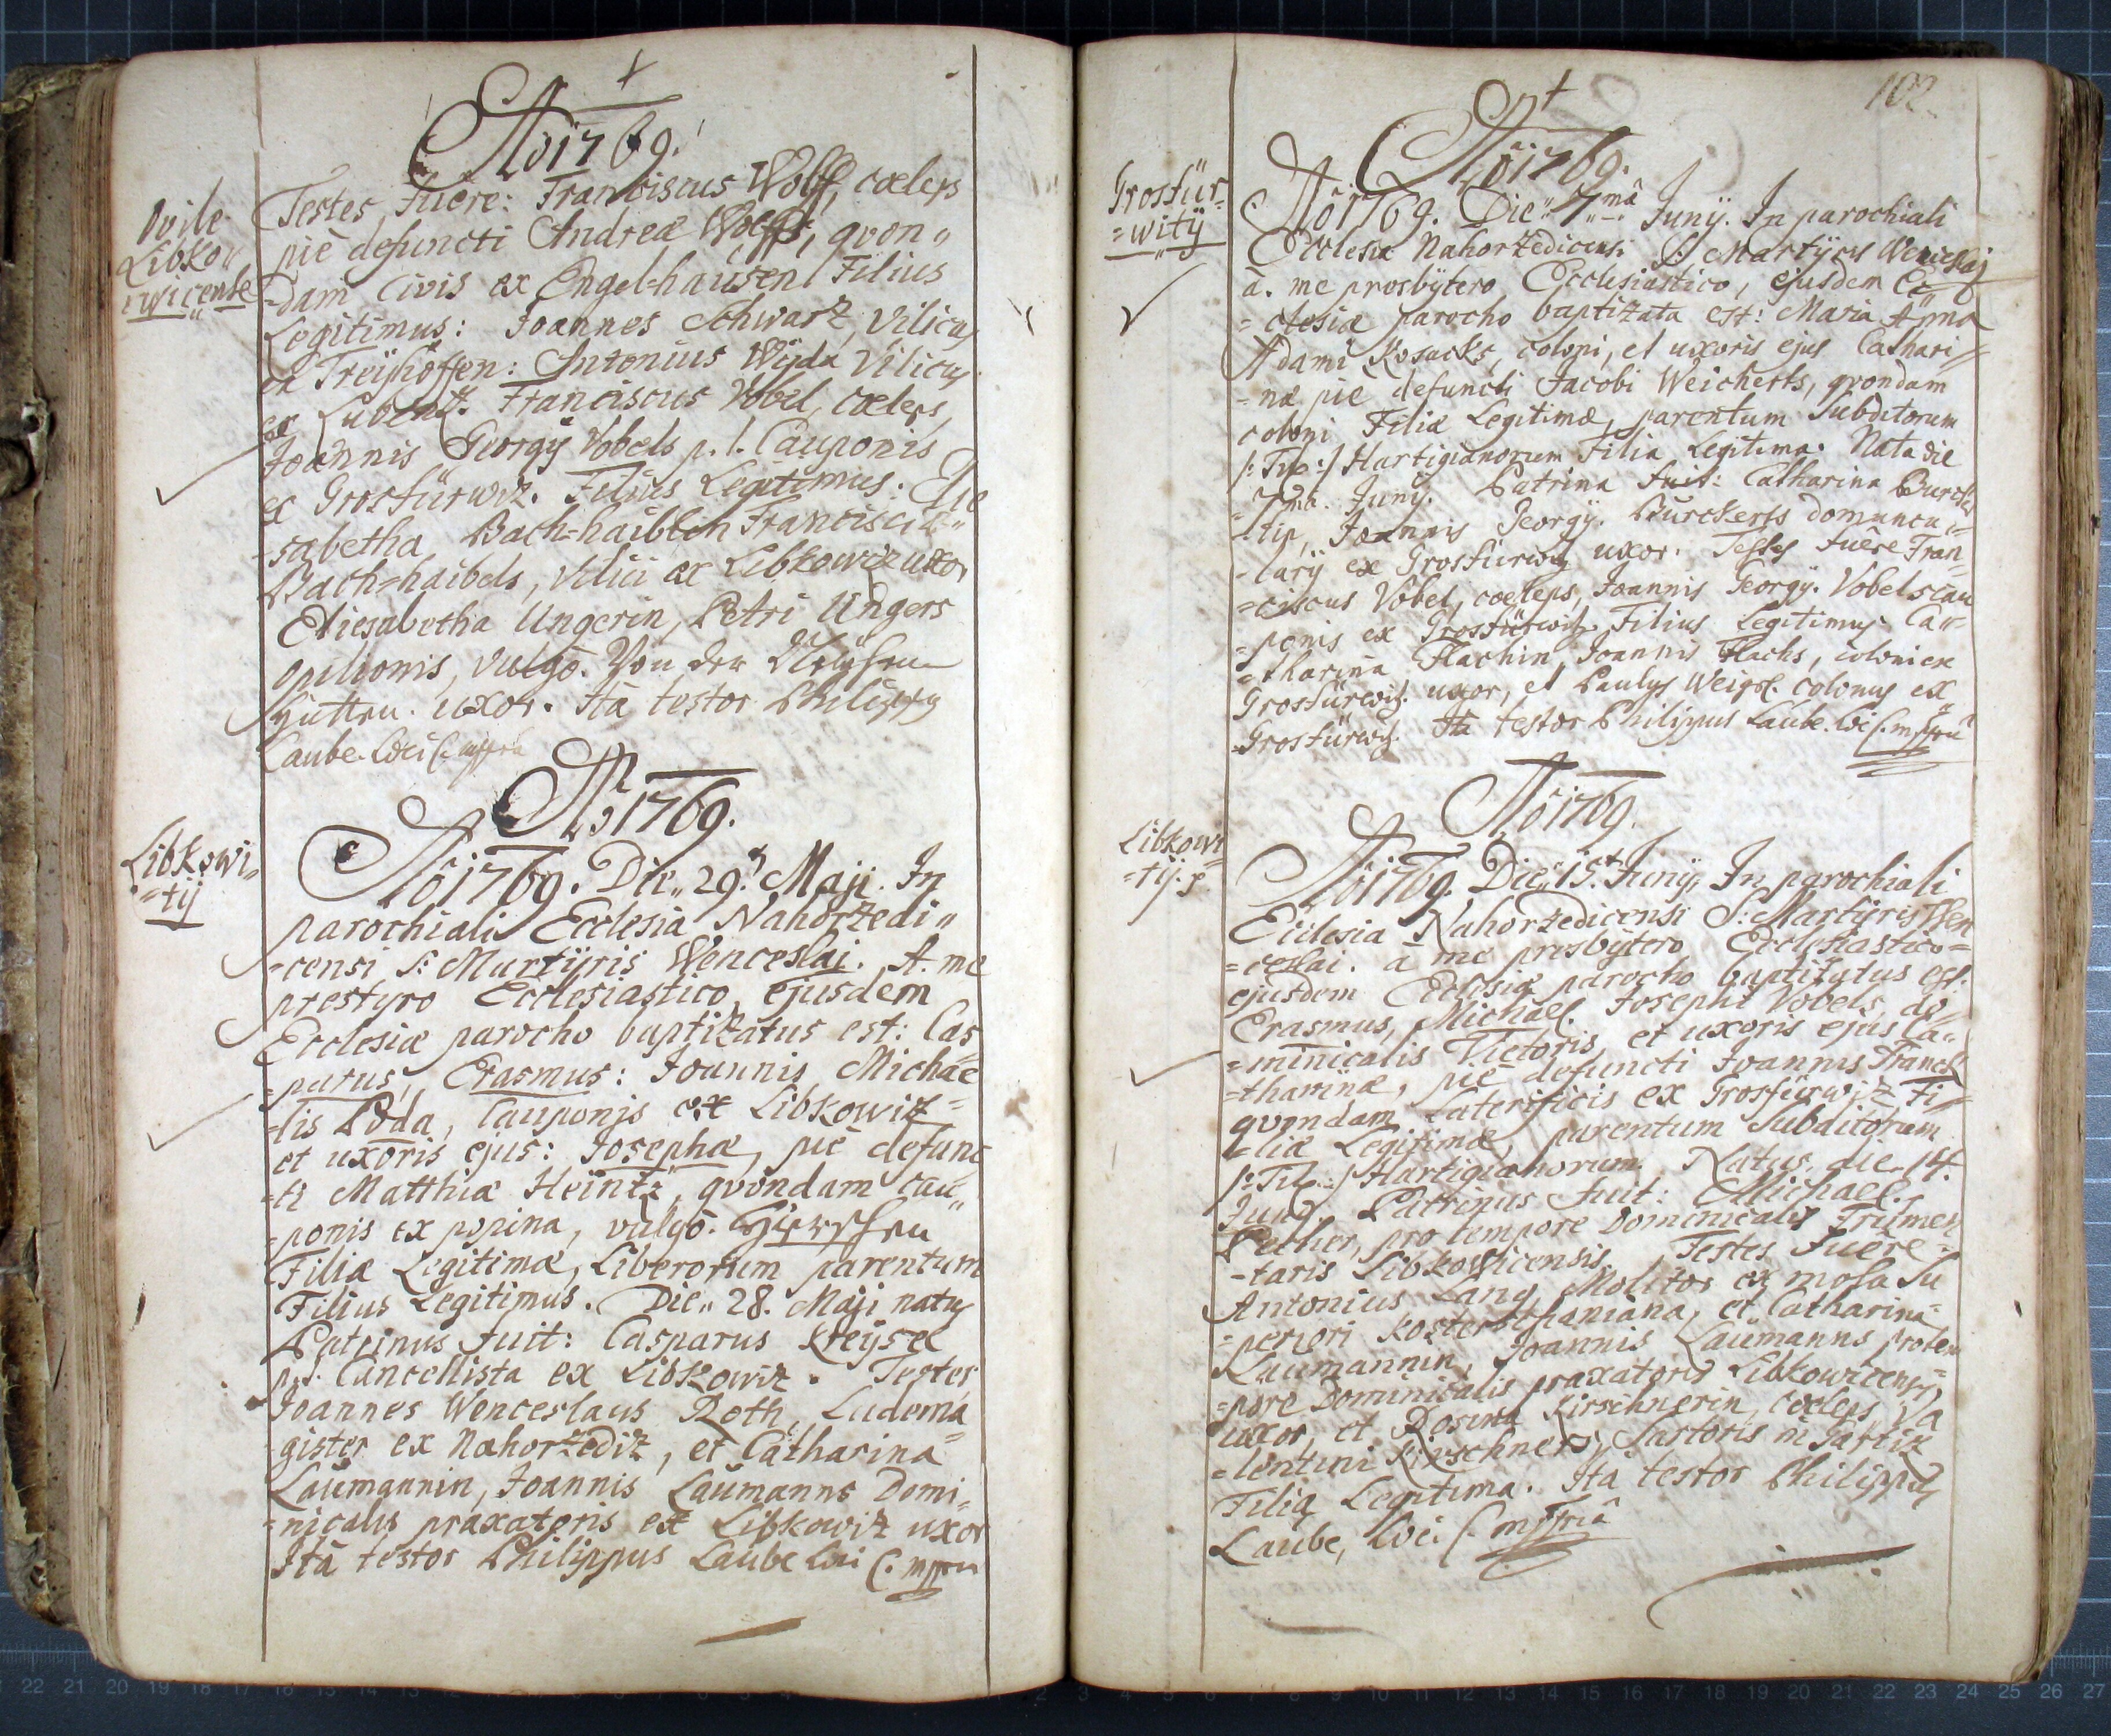 Aô 1769.
Ovile
Libko„
„wicense
Testes fuêre: Franciscus Wolff, cœlebs
piè defuncti Andreæ Wolff, qvon„
-dam Civis ex Engelhaüsen Filius
Legitimus: Joannes Schwarz, Vilicus
ex Treÿhöffen: Antonius Wÿda Vilicus
ex Lubenz. Franciscus Vobel, cœlebs,
Joannis Georgÿ Vobels p. t. Cauponis
ex Grosfürwiz. Filius Legitimus. Elie
-sabetha Bach=haiblin Francisci
Bach=haibels, Vilici ex Libkowiz uxor
Eliesabetha Ungerin, Petri Ungers
opilionis, vulgò. Von der
Hütten. uxor. Ità testor Philippus
Laube. Loci C. mppria
Aô 1769.
Libkowi„
=tÿ
Aô 1769. Die„ 29. Maji. In
parochiali Ecclesia Nahorzedi„
=censi S: Martÿris Wenceslai. A. me
prestyro Ecclesiastico, ejusdem
Ecclesiæ parocho baptizatus est: Cas
=parus, Erasmus: Joannis Michae
-lis Poda, Cauponis ex Libkowiz
et uxoris ejus: Josephæ, piè defunc
-ti Matthiæ Heintz, qvondam cau„
=ponis ex popina, vulgò.
Filiæ Legitimæ, Liberorum parentum
Filius Legitimus. Die„ 28. Maji natus
Patrinus fuit: Casparus Kreÿsel
p.t. Cancellista ex Libkowiz. Testes
Joannes Wenceslaus Roth, Ludema=
gister ex Nahorzediz, et Catharina
Laumannin, Joannis Laumanns Domi„
=nicalis praxatoris ex Libkowiz uxor
Ità testor Philippus Laube Loci C. mppria
102
Aô 1769.
Grosfür=
=witÿ
Aô 1769. Die„ 7mâ Junÿ. In parochiali
Ecclesia Nahorzedicensi S: Martÿris Wenceslaj
à. me presbÿtero Ecclesiastico, ejusdem Ec„
=clesiæ parocho baptizata est: Maria Anna
Adami Kosacks, coloni, et uxoris ejus Cathari„
=næ piè defuncti Jacobi Weicherts, qvondam
coloni Filiæ Legitimæ, parentum Subditorum
/: Tit :/ Hartigianorum Filia Legitima. Nata die
=7ma. Junÿ. Patrina fuit: Catharina Burcker
-tin, Joannis Georgÿ. Burckerts domuncu„
-larÿ ex Grosfürwiz uxor. Testes fuêre Fran„
=ciscus Vobel, coelebs, Joannis Georgÿ. Vobels cau
=ponis ex Grosfürwiz Filius Legitimus Ca„
=tharina Flachin, Joannis Flachs, coloni ex
Grosfürwiz. uxor, et Paulus Weigl. colonus ex
Grosfürwiz. Ità testor Philippus Laube. Loci C. mppria
Aô 1769.
Libkowi=
=tÿ.
Aô 1769. Die„ 15. Junÿ, In parochiali
Ecclesia Nahorzedicensi S: Martÿris Wen
=ceslai. à me presbÿtero Ecclesiastico=
ejusdem Ecclesiæ parocho baptizatus est.
Erasmus, Michael. Josephi Vobels, do„
=minicalis Vietoris, et uxoris ejus Ca„
=tharinæ, piè defuncti Joannis Francks
qvondam Laterificis ex Grosfürwiz Fi„
=liæ Legitimæ, parentum Subditorum
/: Tit :/ Hartigianorum. Natus, die. 14.
Junÿ. Patrinus fuit: Michael.
pro tempore Dominicalis Frumen
-taris Libkowicensis. Testes fuêre=
Antonius Lang, Molitor ex mola Su
=periori et Catharina
Laumannin, Joannis Laumanns protem
=pore Dominicalis praxatoris Libkowicensis,
uxor, et Rosina Kirschnerin, cœlebs, Va
=lentini Kirschners, Sartoris in
Filia Legitima. Ità testor Philippus
Laube, Loci C. mppriâ